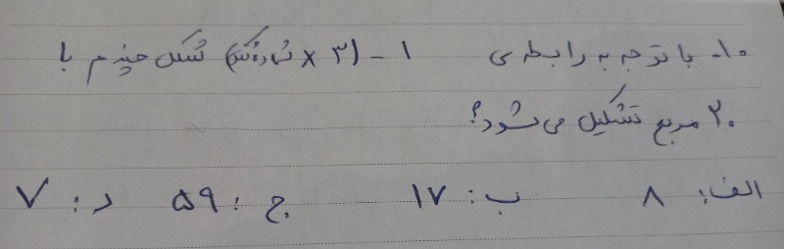 ۱۰- با توجه به رابطه ی ۱ - (۳ × شماره شکل) شکل چندم با
۲۰ مربع تشکیل می شود؟
الف: ۸ ب: ۱۷ ج: ۵۹ د: ۷